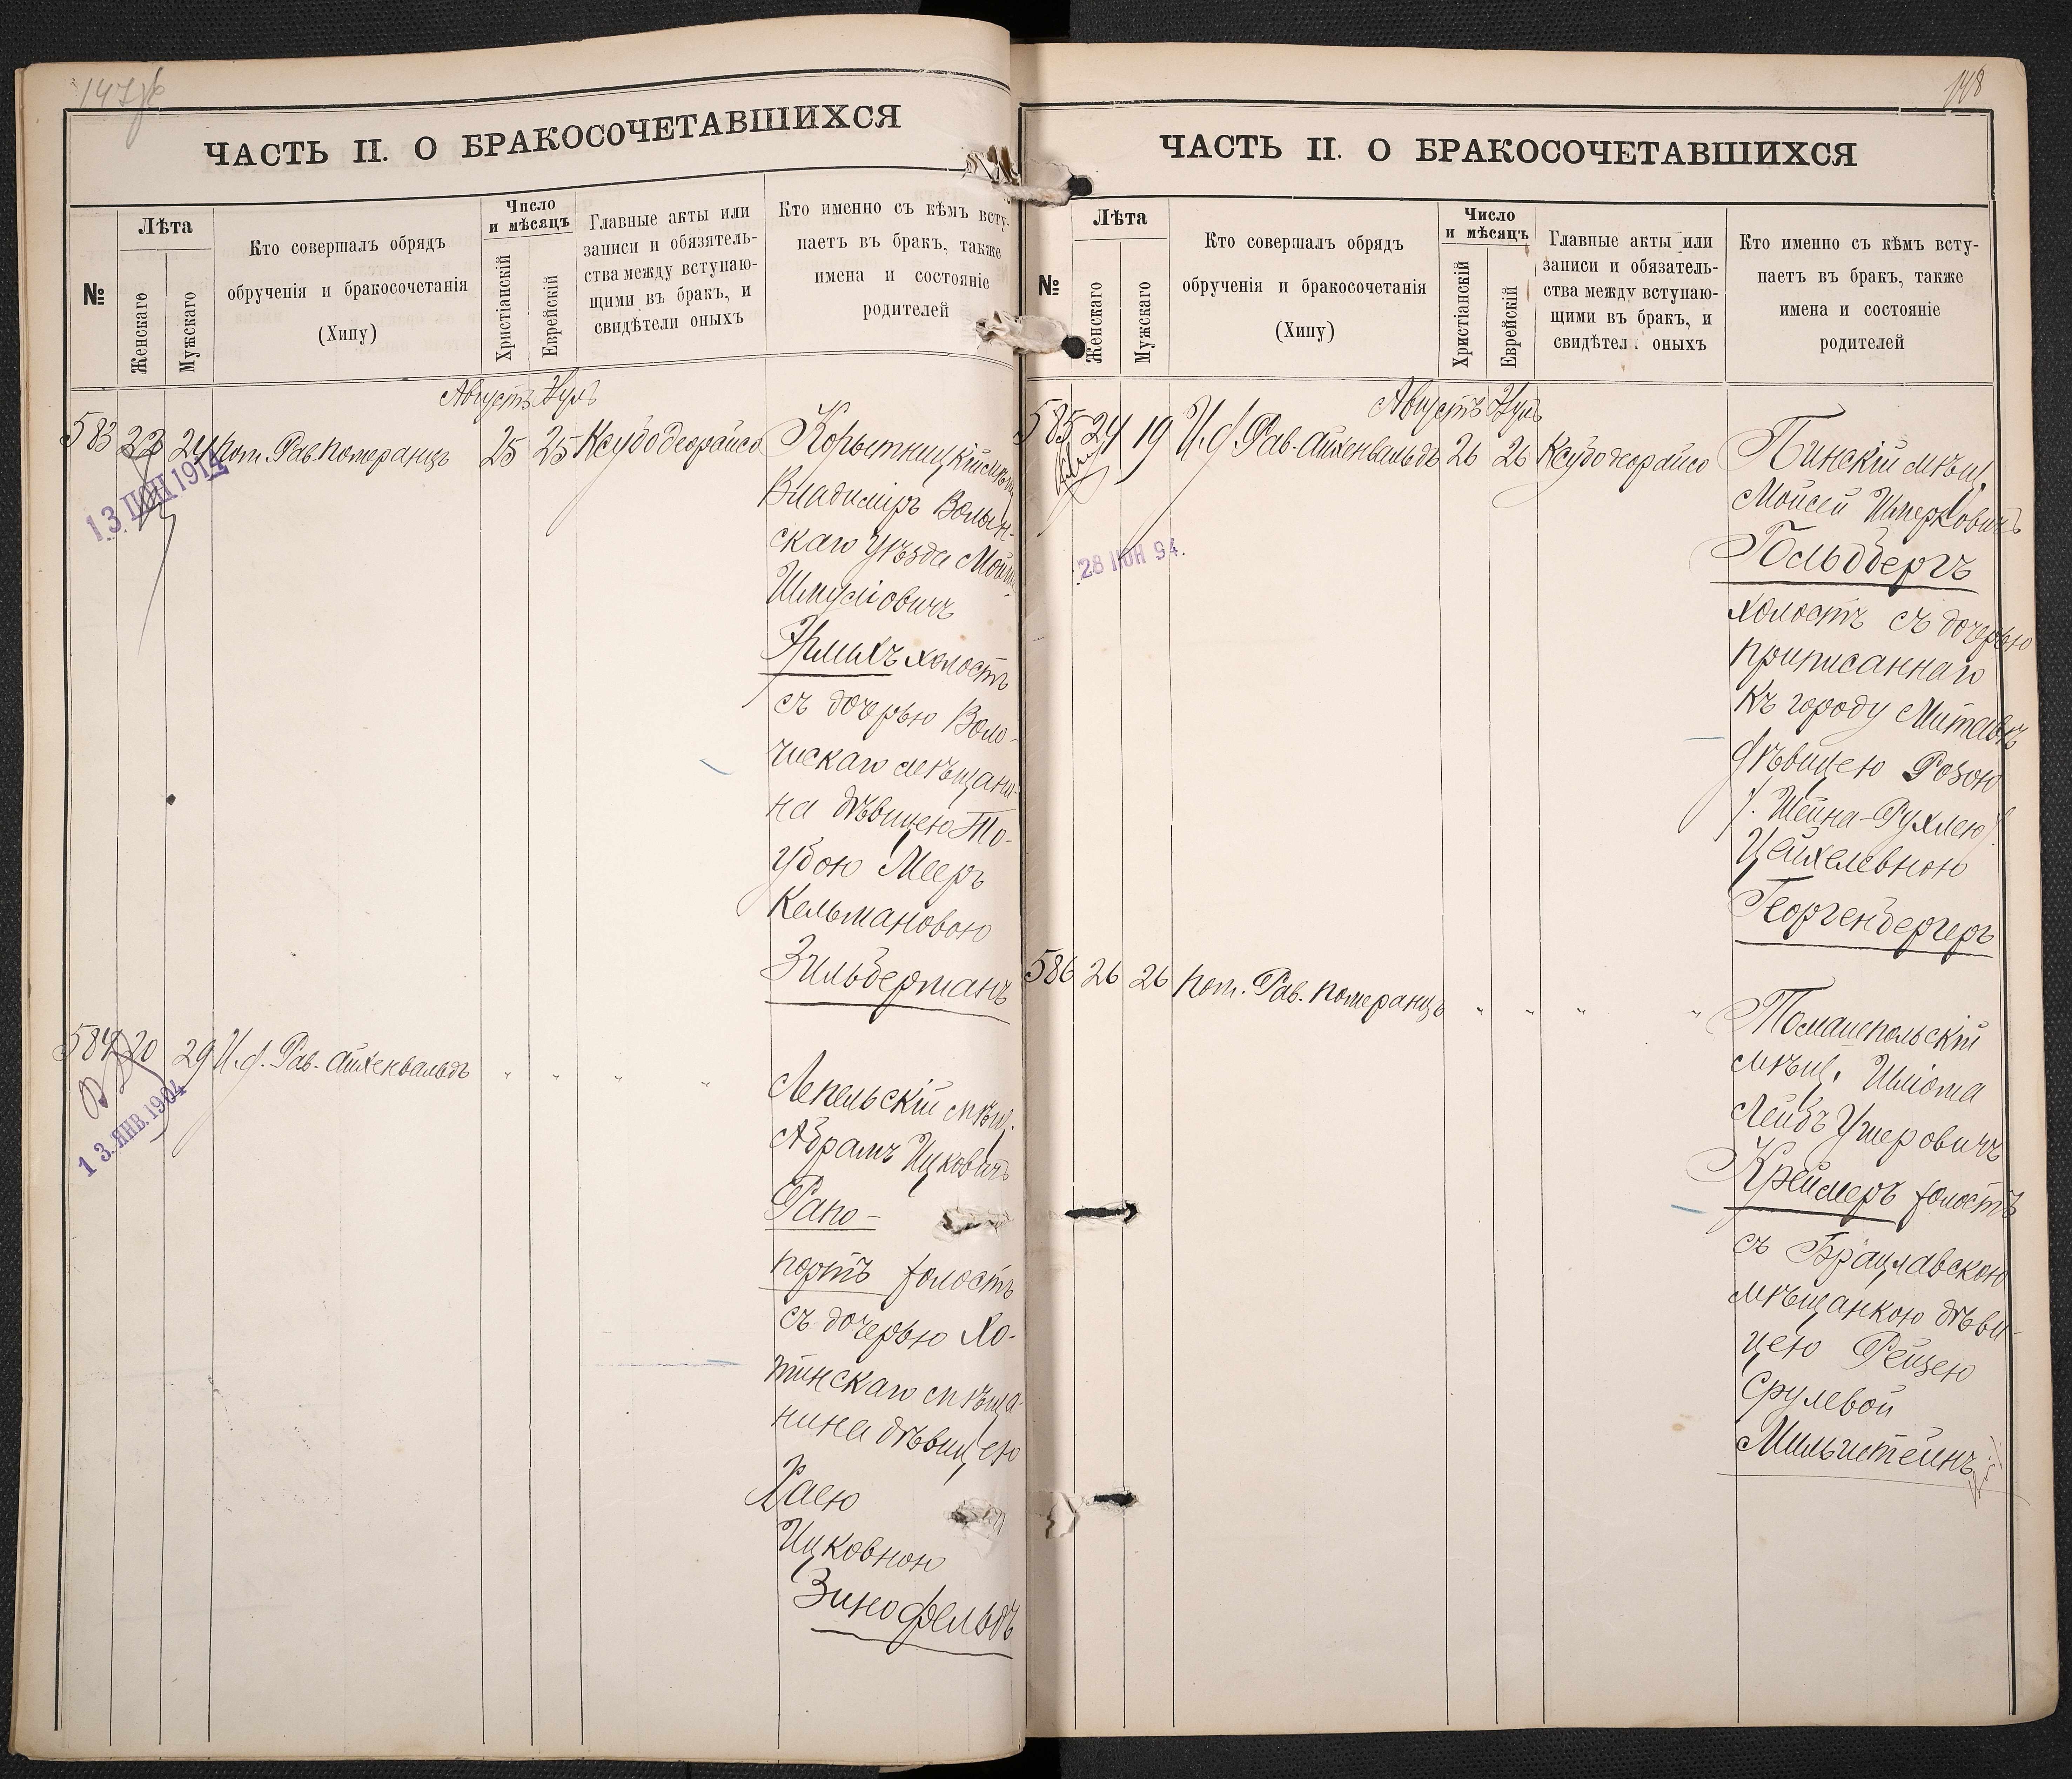 147об
ЧАСТЬ II. О БРАКОСОЧЕТАВШИХСЯ
№
Лѣта
Женскаго
Мужскаго
Кто совершалъ обрядъ
обрученія и бракосочетанія
(Хипу)
Число
и мѣсяцъ
Христіанскій
Еврейскій
Главные акты или
записи и обязятель-
ства между вступаю-
щими въ бракъ, и
свидѣтели оныхъ
Кто именно съ кѣмъ всту-
паетъ въ бракъ, также
имена и состояніе
родителей
Августъ
583 23 24 пом. Рав. Померанцъ 25 25 Ксубо деорайсо
13 ІЮН 1914
Корытницкій мѣщ
Владиміръ Волын-
скаго уѣзда
Шмуліовичъ
холостъ
съ дочерью Воло-
чискаго мѣщани-
на дѣвицею То-
убою Мееръ
Кельмановою
Зильберманъ
584 20 29 И. д. Рав. Айхенвальдъ " " " "
13. ЯНВ. 1904
Лепельскій мѣщ.
Абрамъ Ицковичъ
Рапо-
портъ холостъ
съ дочерью Хо-
тинскаго мѣща-
нина дѣвицею
Хаею
Ицковною
Зинофельдъ
148
ЧАСТЬ II. О БРАКОСОЧЕТАВШИХСЯ
№
Лѣта
Женскаго
Мужскаго
Кто совершалъ обрядъ
обрученія и бракосочетанія
(Хипу)
Число
и мѣсяцъ
Христіанскій
Еврейскій
Главные акты или
записи и обязатель-
ства между вступаю-
щими въ бракъ, и
свидѣтел оныхъ
Кто именно съ кѣмъ всту-
паетъ въ бракъ, также
имена и состояніе
родителей
Августъ
585 24 19 И. д. Рав. Айхенвальдъ 26 26 Ксубо деорайсо
28 ІЮН 94.
Пинскій мѣщ.
Мойсей Шмерковичъ
Гольдбергъ
холостъ съ дочерью
приписаннаго
къ городу Митавѣ
дѣвицею Розою
/. Шейна-Рухлею/.
Цейхелевною
Георгенбергеръ
586 26 26 пом. Рав. Померанцъ " " " "
Томашпольскій
мѣщ. Шліома
Лейбъ Ушеровичъ
Креймеръ холостъ
съ Брацлавскою
мѣщанкою дѣви-
цею Рейзею
Срулевой
Мильштейнъ